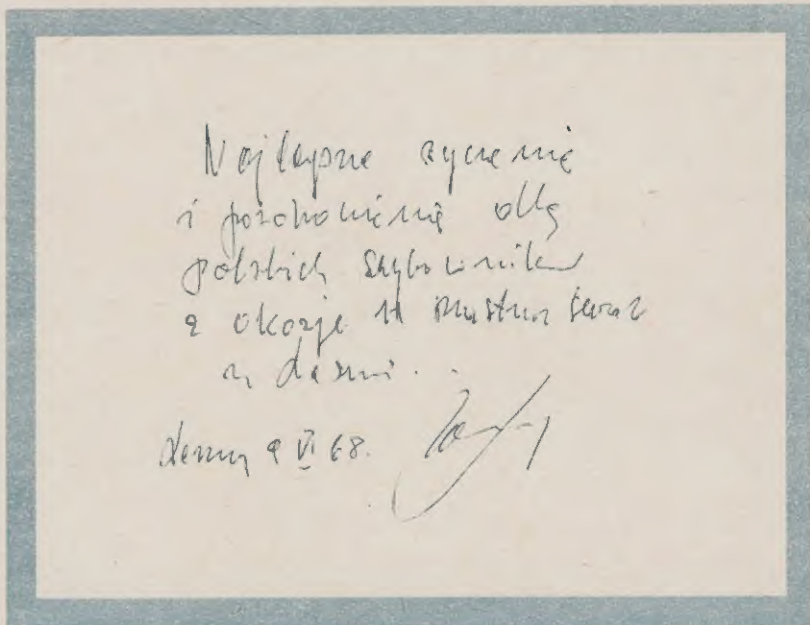 Najlepsze życzenia
i pozdrowienia dla
polskich szybowników
z okazji 11 mistrzo świat
w Lesznie.
Leszno 9 VI 68.